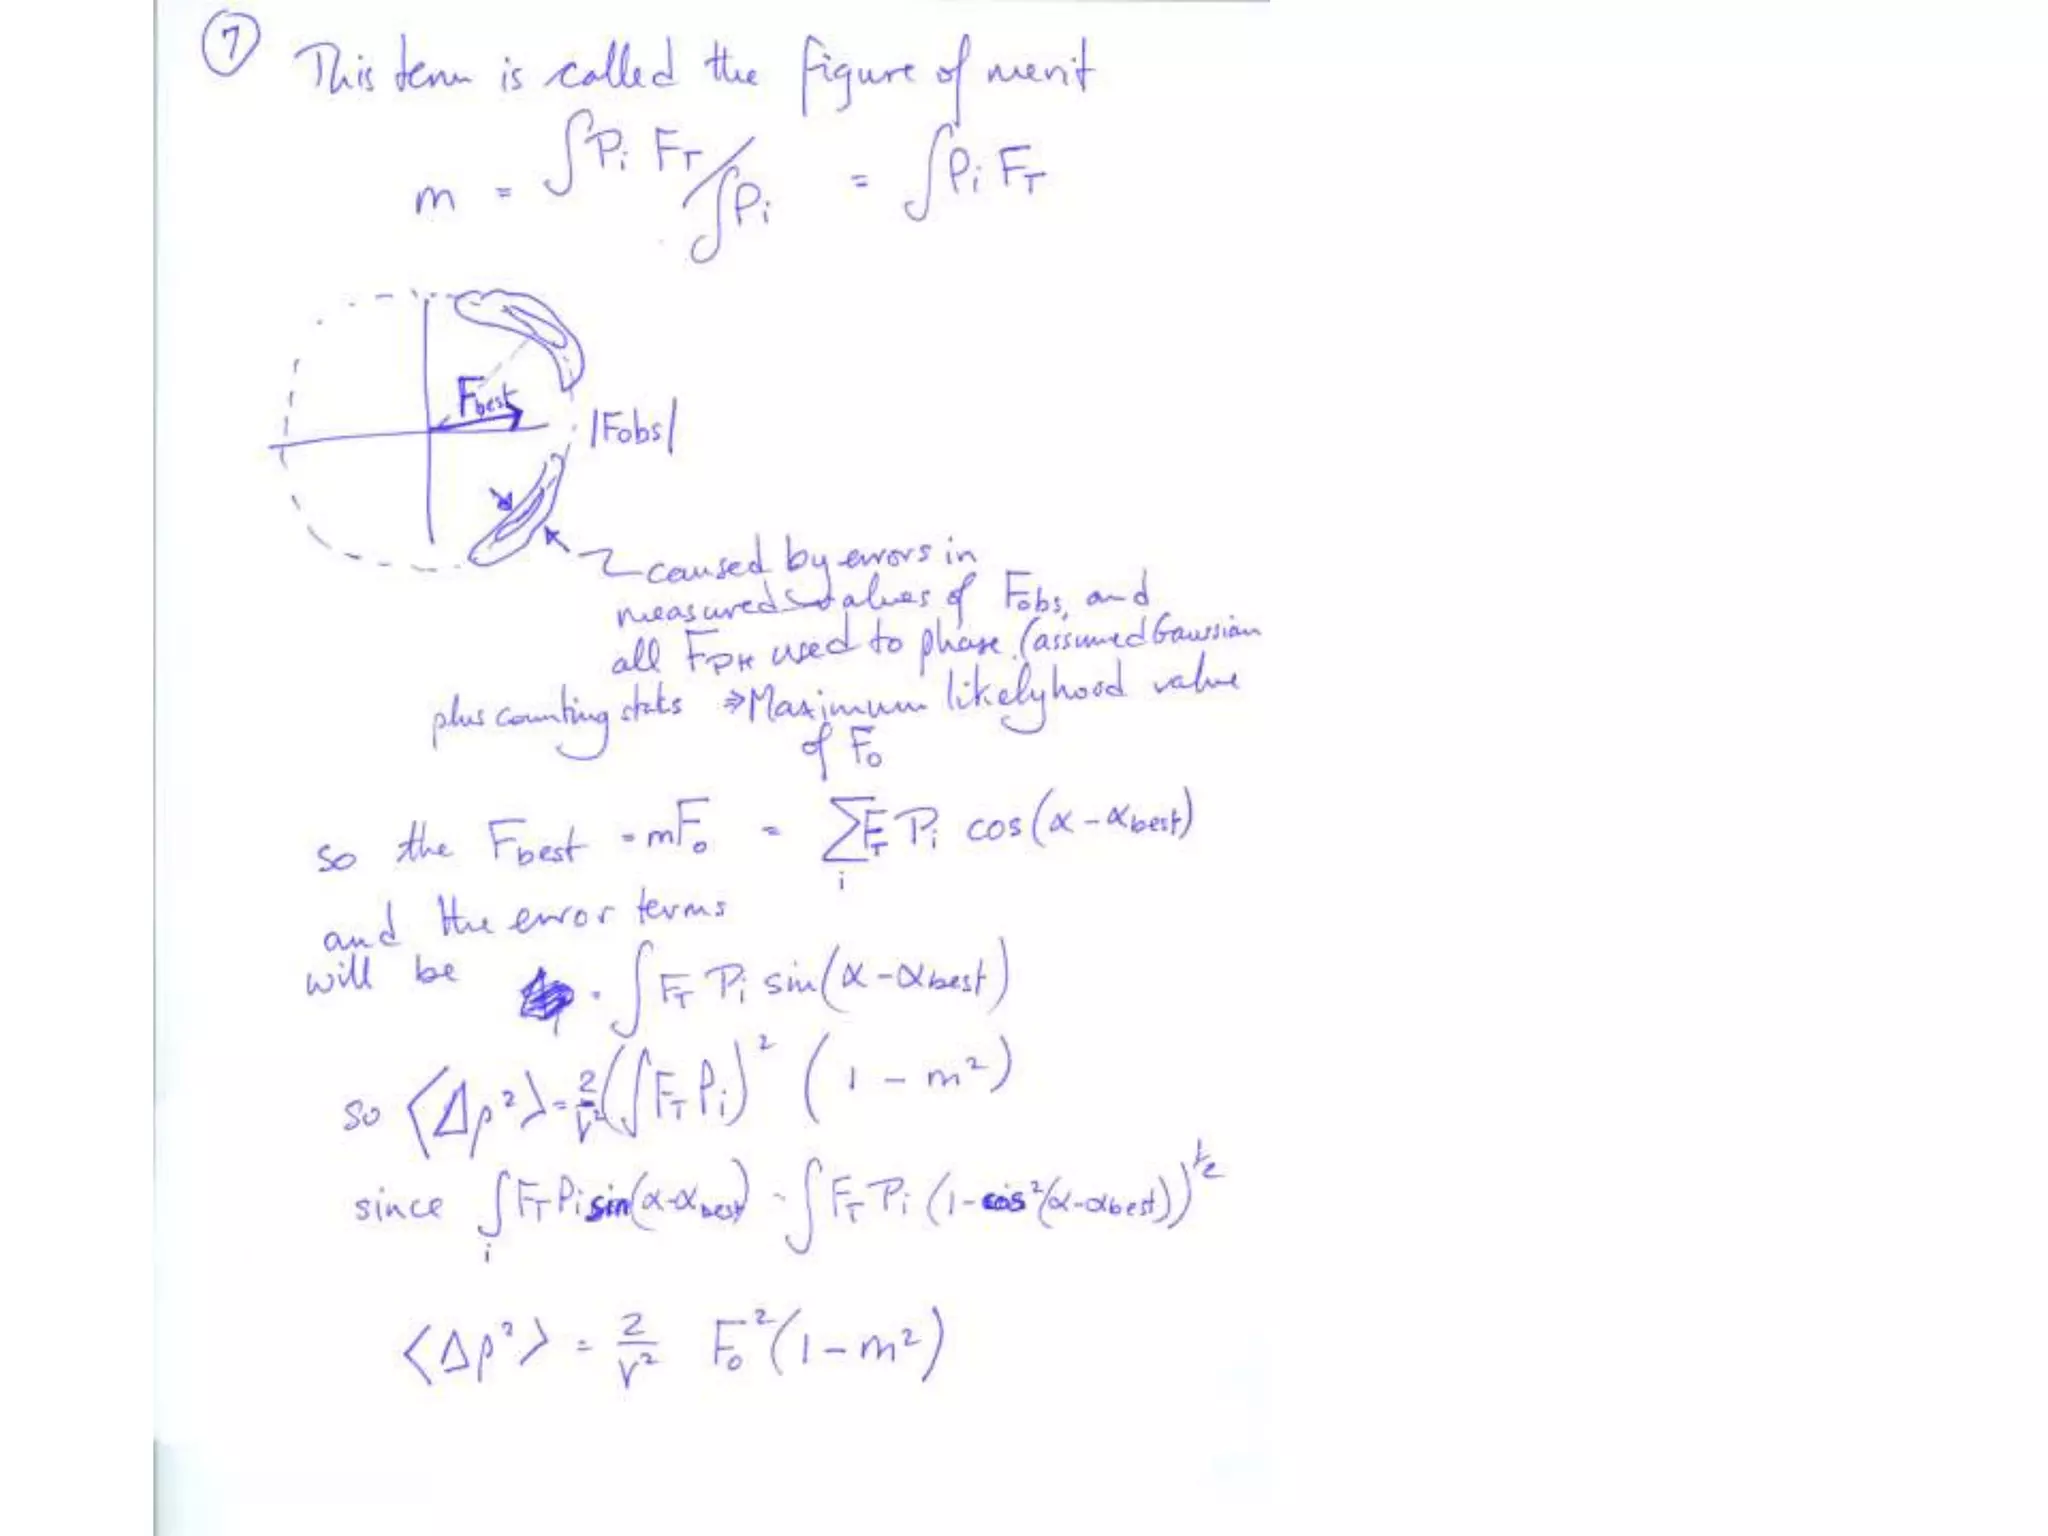 ⑦ This term is called the figure of merit
m = ∫Pi FT / ∫Pi = ∫Pi FT
Fbest
|Fobs|
caused by errors in
measured values of Fobs, and
all FPH used to phase (assumed Gaussian
plus counting stats ⇒ Maximum likelyhood value
of Fo
so the Fbest = mFo = Σi FT Pi cos(α-αbest)
and the error terms
will be = ∫FT Pi sin(α-αbest)
so ⟨Δρ²⟩ = 2/V² (∫FT Pi)² (1-m²)
since ∫i FT Pi sin(α-αbest) = ∫FT Pi (1-cos²(α-αbest))^½
⟨Δρ²⟩ = 2/V² Fo²(1-m²)